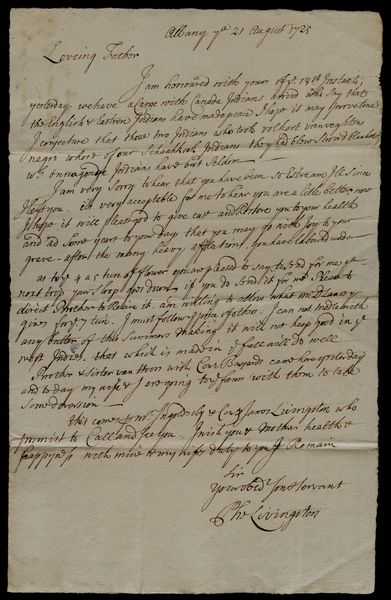 Albany ye 21 August 1725
Loveing Father
I am honoured with your of ye 13th Instant,
yesterday we have a Canoe with Canada Indians arrived who say that
the English & Eastren Indians have made peace I hope it may prove true
I conjecture that those two Indians who took
negro where of our Schaahkook Indians they had blew Strowd Blankets
wch onnagonge Indians have but Seldom.
I am very Sorry to hear that you have been So Extream Ill Since
I left you. it's very acceptable for me to hear you are a little better now
I hope it will please god to give ease and Restore you to your health
and ad some years to your Days that you may go with Joy to your
grave after the many heavy afflictions you have Laboured under
as to ye 4 a 5 tun of flower you are pleased to say to send for me ye
next trip your Sloop goes down if you do send it for me Please to
direct Brother to Receive it am willing to allow what
given for ye 7 tun. I must follow ye price of other. I can not
any butter of this Summers making it will not keep good in ye
west Indies, that which is made in ye fall will do well
Brother & Sister van Horn with Cors came here yesterday
and to day my wife & I are going to ye farm with them to take
Some diversion
this comes p mr Ingoldesby & Cor & James Livingston who
promist to Call and See you. I wish you & Mother health &
happyness with mine & my wife's duty to you I Remain
Sir
Your obedt Son & Servant
Phs Livingston